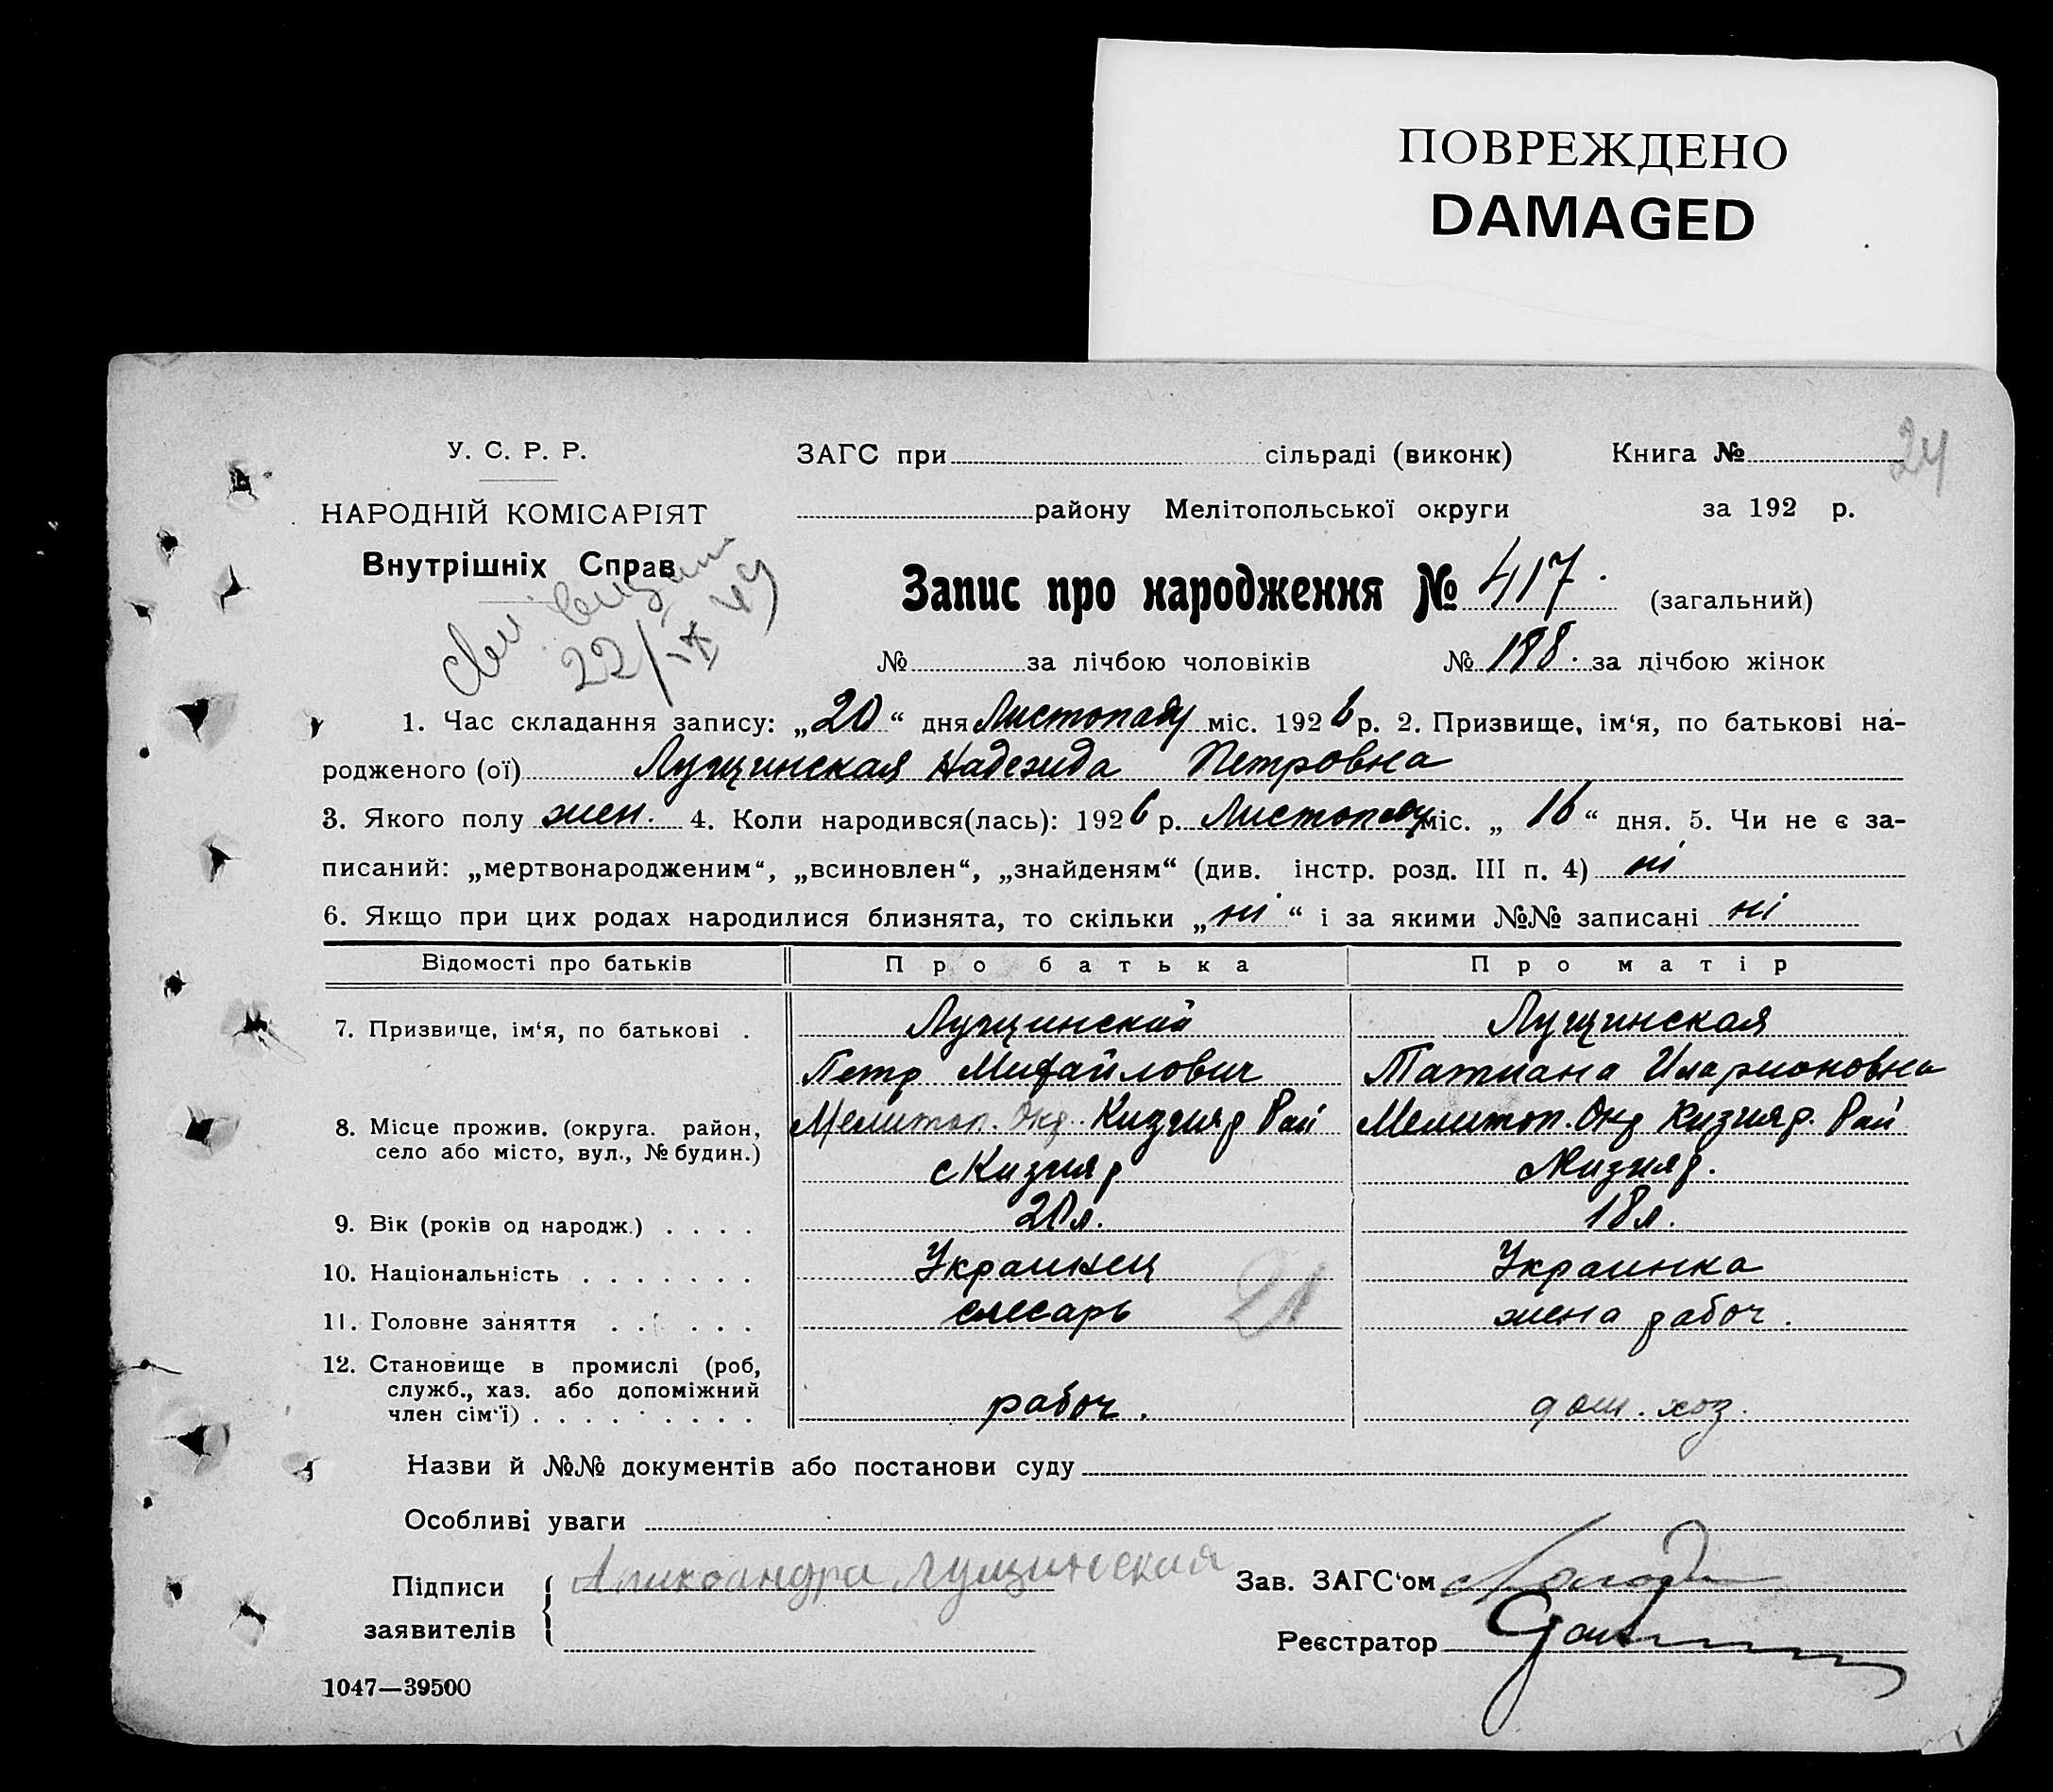 ПОВРЕЖДЕНО
DAMAGED
У. С. Р. Р.
ЗАГС при сільраді (виконк) Книга № 24
НАРОДНІЙ КОМІСАРІЯТ
району Мелітопольської округи за 192 р.
Внутрішніх Справ
Запис про народження № 417. (загальний)
22/IX 49
№ за лічбою чоловіків № 188. за лічбою жінок
1. Час складання запису: „20“ дня Листопаду міс. 1926 р. 2. Призвище, ім‘я, по батькові на-
родженого (ої) Лущинская Надежда Петровна
3. Якого полу жен. 4. Коли народився(лась): 1926 р. Листопаду міс. „16“ дня. 5. Чи не є за-
писаний: „мертвонародженим“, „всиновлен“, „знайденям“ (див. інстр. розд. III п. 4) ні
6. Якщо при цих родах народилися близнята, то скільки „ні“ і за якими №№ записані ні
Відомості про батьків Про батька Про матір
7. Призвище, ім‘я, по батькові . Лущинский Лущинская
Петр Михайлович Татиана Иларионовна
8. Місце прожив. (округа. район, Мелитоп. Окр. Кизияр Рай Мелитоп. Окр Кизияр. Рай
село або місто, вул., № будин.) с Кизияр с Кизияр.
9. Вік (років од народж.) . . . . 20 л. 18 л.
10. Національність . . . . . . . Украинец Украинка
11. Головне заняття . . . . . слесарь 21 жена рабоч.
12. Становище в промислі (роб,
служб., хаз. або допоміжний
член сім‘ї) . . . . . . . . . рабоч. дом. хоз.
Назви й №№ документів або постанови суду
Особливі уваги
Підписи Александра Лущинская Зав. ЗАГС‘ом
заявителів Реєстратор
1047—39500